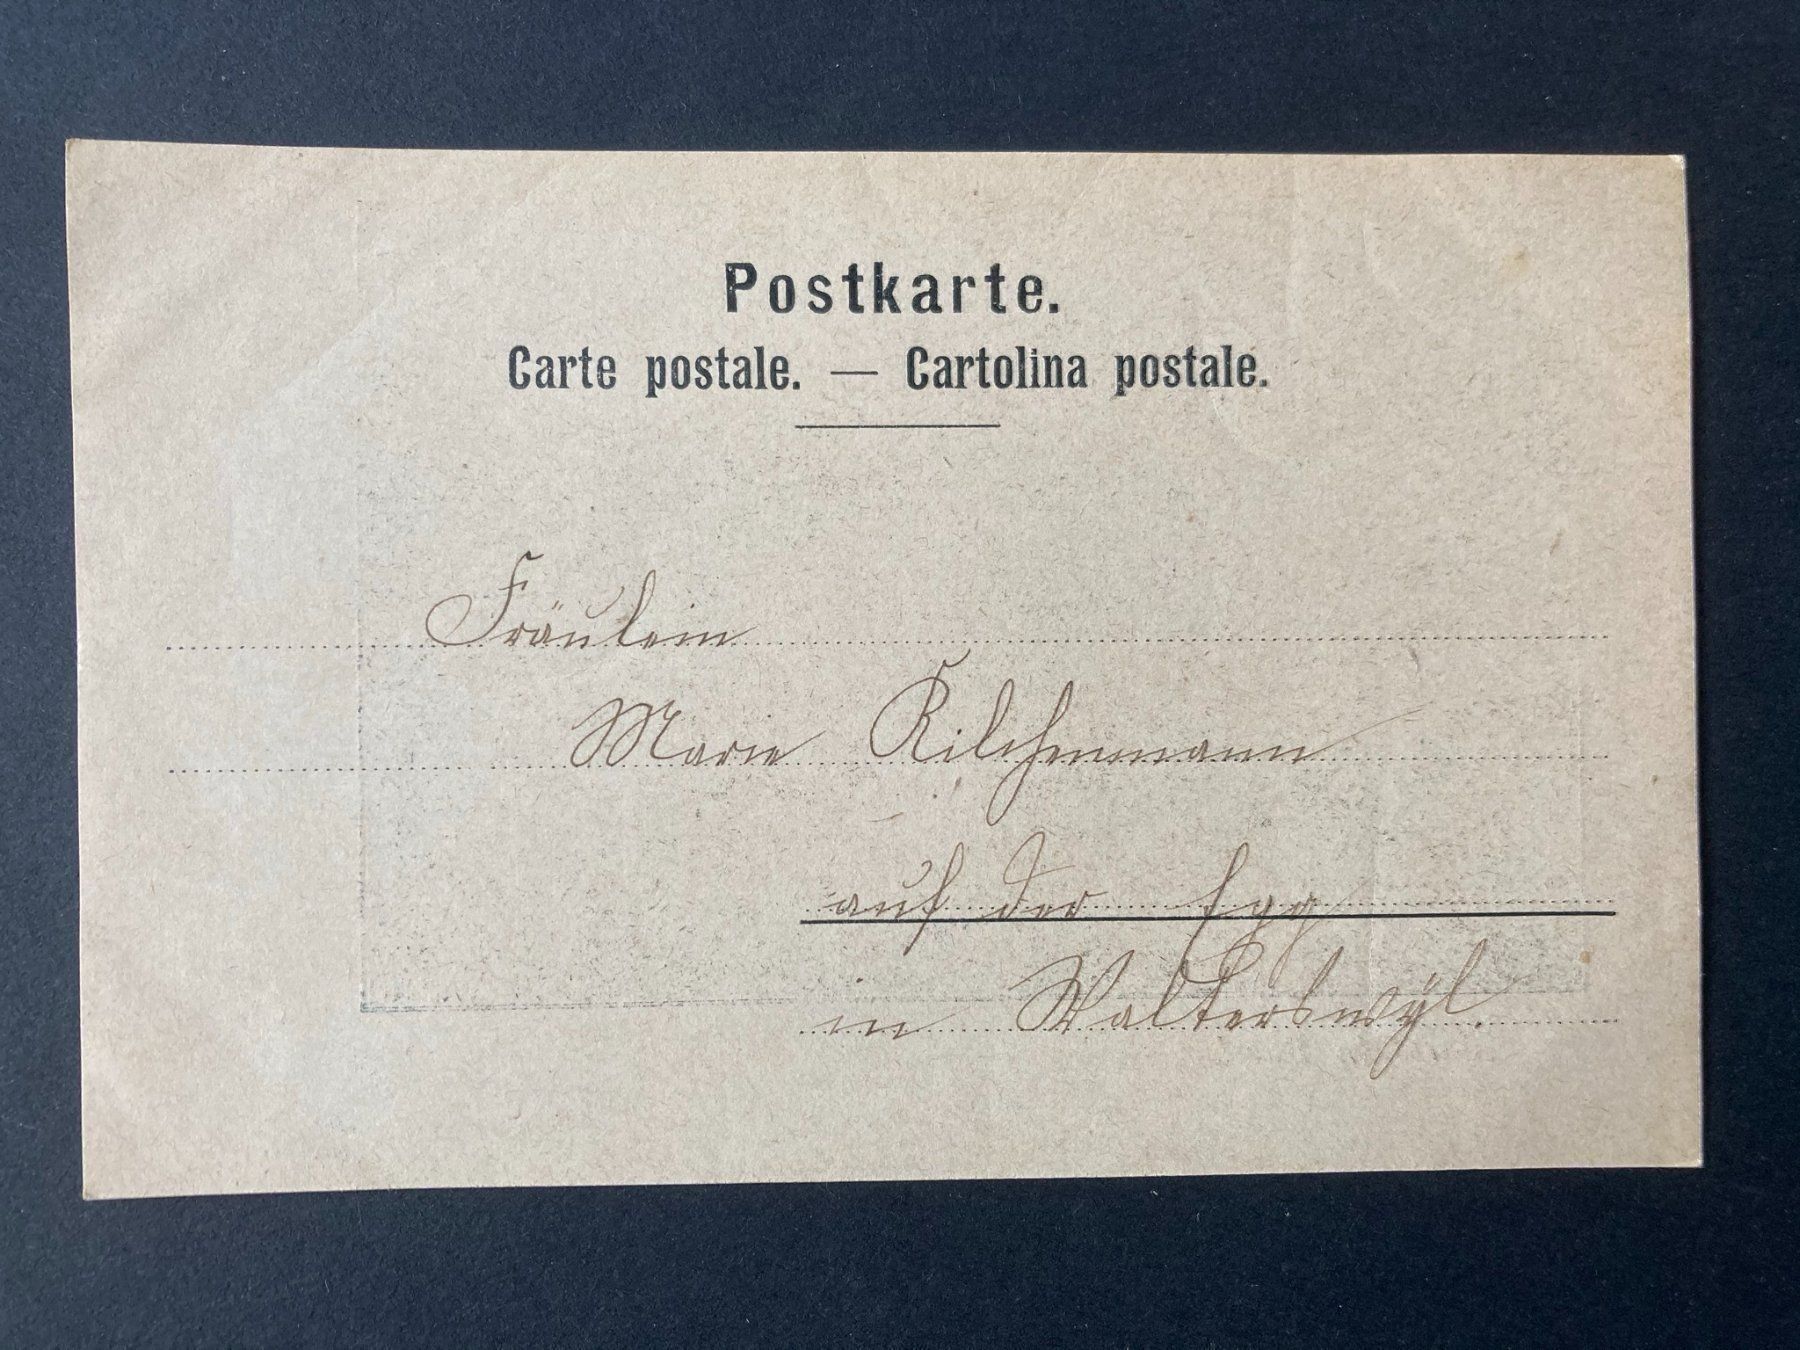 Postkarte.
Carte postale. — Cartolina postale.
Fräulein
Marie Kilchenmann
auf der Egg
in Walterswÿl.